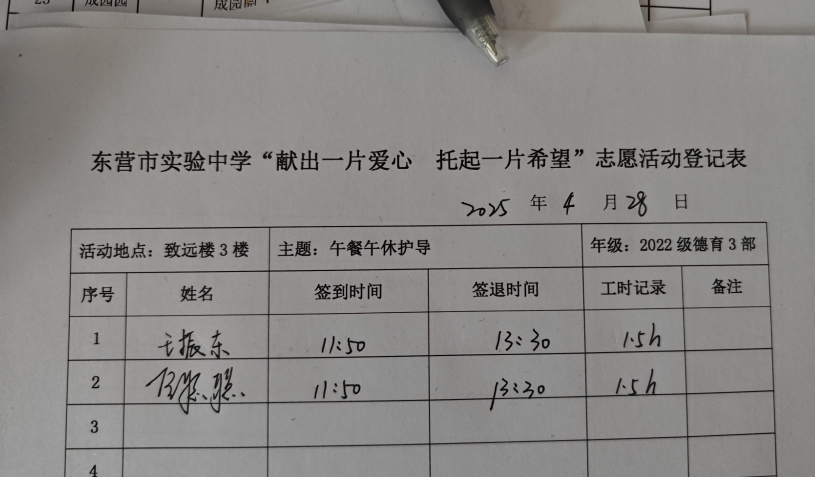 23 成园园 成园园
东营市实验中学“献出一片爱心 托起一片希望”志愿活动登记表
2025 年 4 月 28 日
活动地点：致远楼3楼 主题：午餐午休护导 年级：2022级德育3部
序号 姓名 签到时间 签退时间 工时记录 备注
1 王振东 11:50 13:30 1.5h
2 11:50 13:30 1.5h
3
4